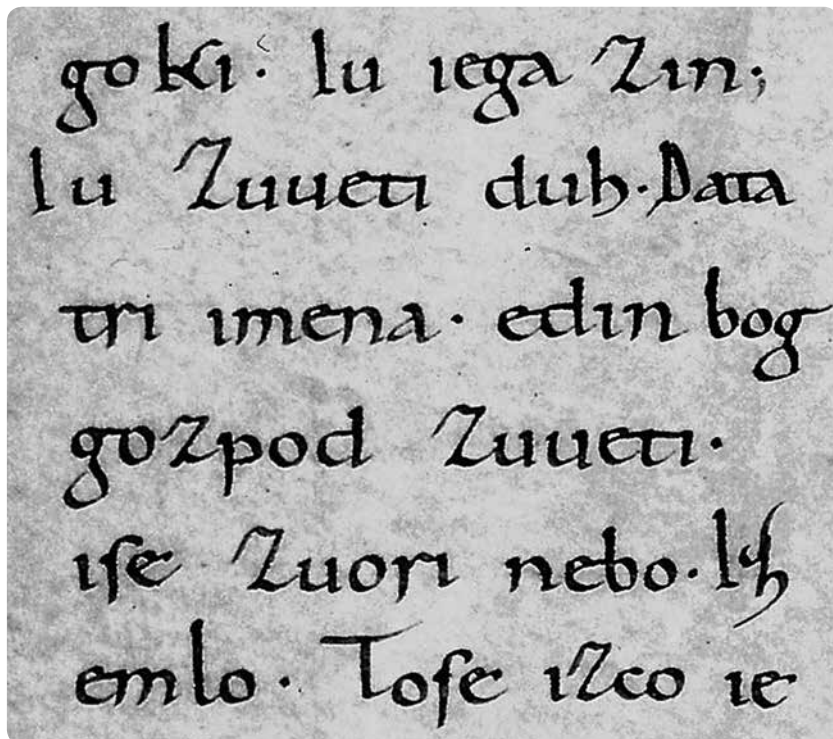 goki. Iu iega Zin;
Iu Zuueti duh. Data
tri imena. edin bog
gozpod Zuueti.
ise Zuori nebo. Iz
emlo. Tose izco ie